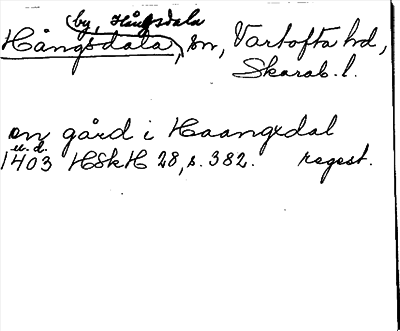 by, Hångsdala
Hångsdala, sn, Vartofta hd,
Skarab. l.
en gård i Haangxdal
u.d.
1403 HSkH 28, s. 382. regest.